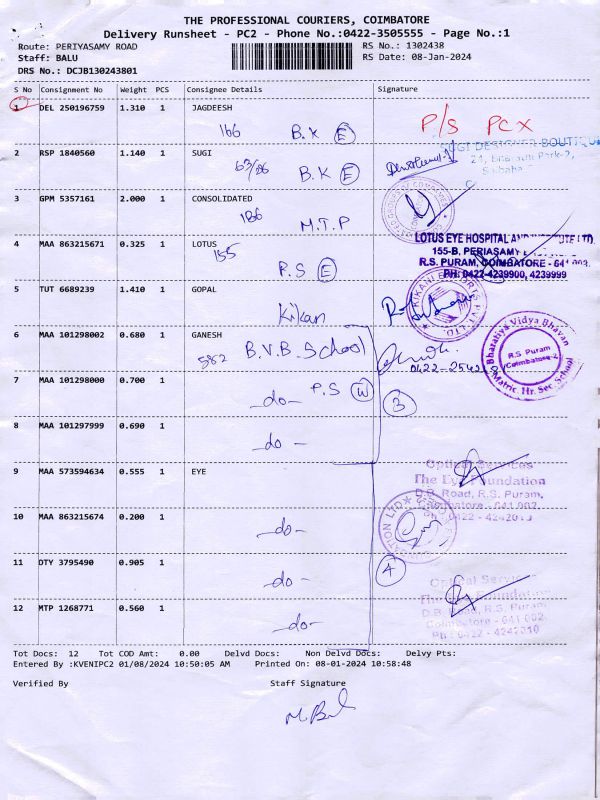 THE PROFESSIONAL COURIERS, COIMBATORE
Delivery Runsheet - PC2 - Phone No.:0422-3505555 - Page No.:1
Route: PERIYASAMY ROAD
RS No.: 1302438
Staff: BALU
RS Date: 08-Jan-2024
DRS No.: DCJB130243801
S No Consignment No Weight PCS Consignee Details Signature
1 DEL 250196759 1.310 1 JAGDEESH
166 B.K E P/S PCX
2 RSP 1840560 1.140 1 SUGI
SUGI DESIGNER BOUTIQUE
63/86 B.K E
3 GPM 5357161 2.000 1 CONSOLIDATED
186 M.T.P
4 MAA 863215671 0.325 1 LOTUS
155
P.S E
LOTUS EYE HOSPITAL AND INSTITUTE LTD.
155-B, PERIASAMY
R.S. PURAM, COIMBATORE - 641 002.
PH: 0422-4239900, 4239999
5 TUT 6689239 1.410 1 GOPAL
Kikan
6 MAA 101298002 0.680 1 GANESH
582 B.V.B. School
Bharatiya Vidya Bhavan
R.S Puram
Coimbatore-2
Matric. Hr. Sec. School
7 MAA 101298000 0.700 1
P.S W
-do- 3
8 MAA 101297999 0.690 1
-do-
9 MAA 573594634 0.555 1 EYE
Optical Services
The Eye Foundation
D.B. Road, R.S. Puram,
Coimbatore - 641 002.
10 MAA 863215674 0.200 1
-do-
11 DTY 3795490 0.905 1
-do- 4
Optical Services
The Eye Foundation
D.B. Road, R.S. Puram,
Coimbatore - 641 002.
Ph: 0422 - 4242010
12 MTP 1268771 0.560 1
-do-
Tot Docs: 12 Tot COD Amt: 0.00 Delvd Docs: Non Delvd Docs: Delvy Pts:
Entered By :KVENIPC2 01/08/2024 10:50:05 AM Printed On: 08-01-2024 10:58:48
Verified By Staff Signature